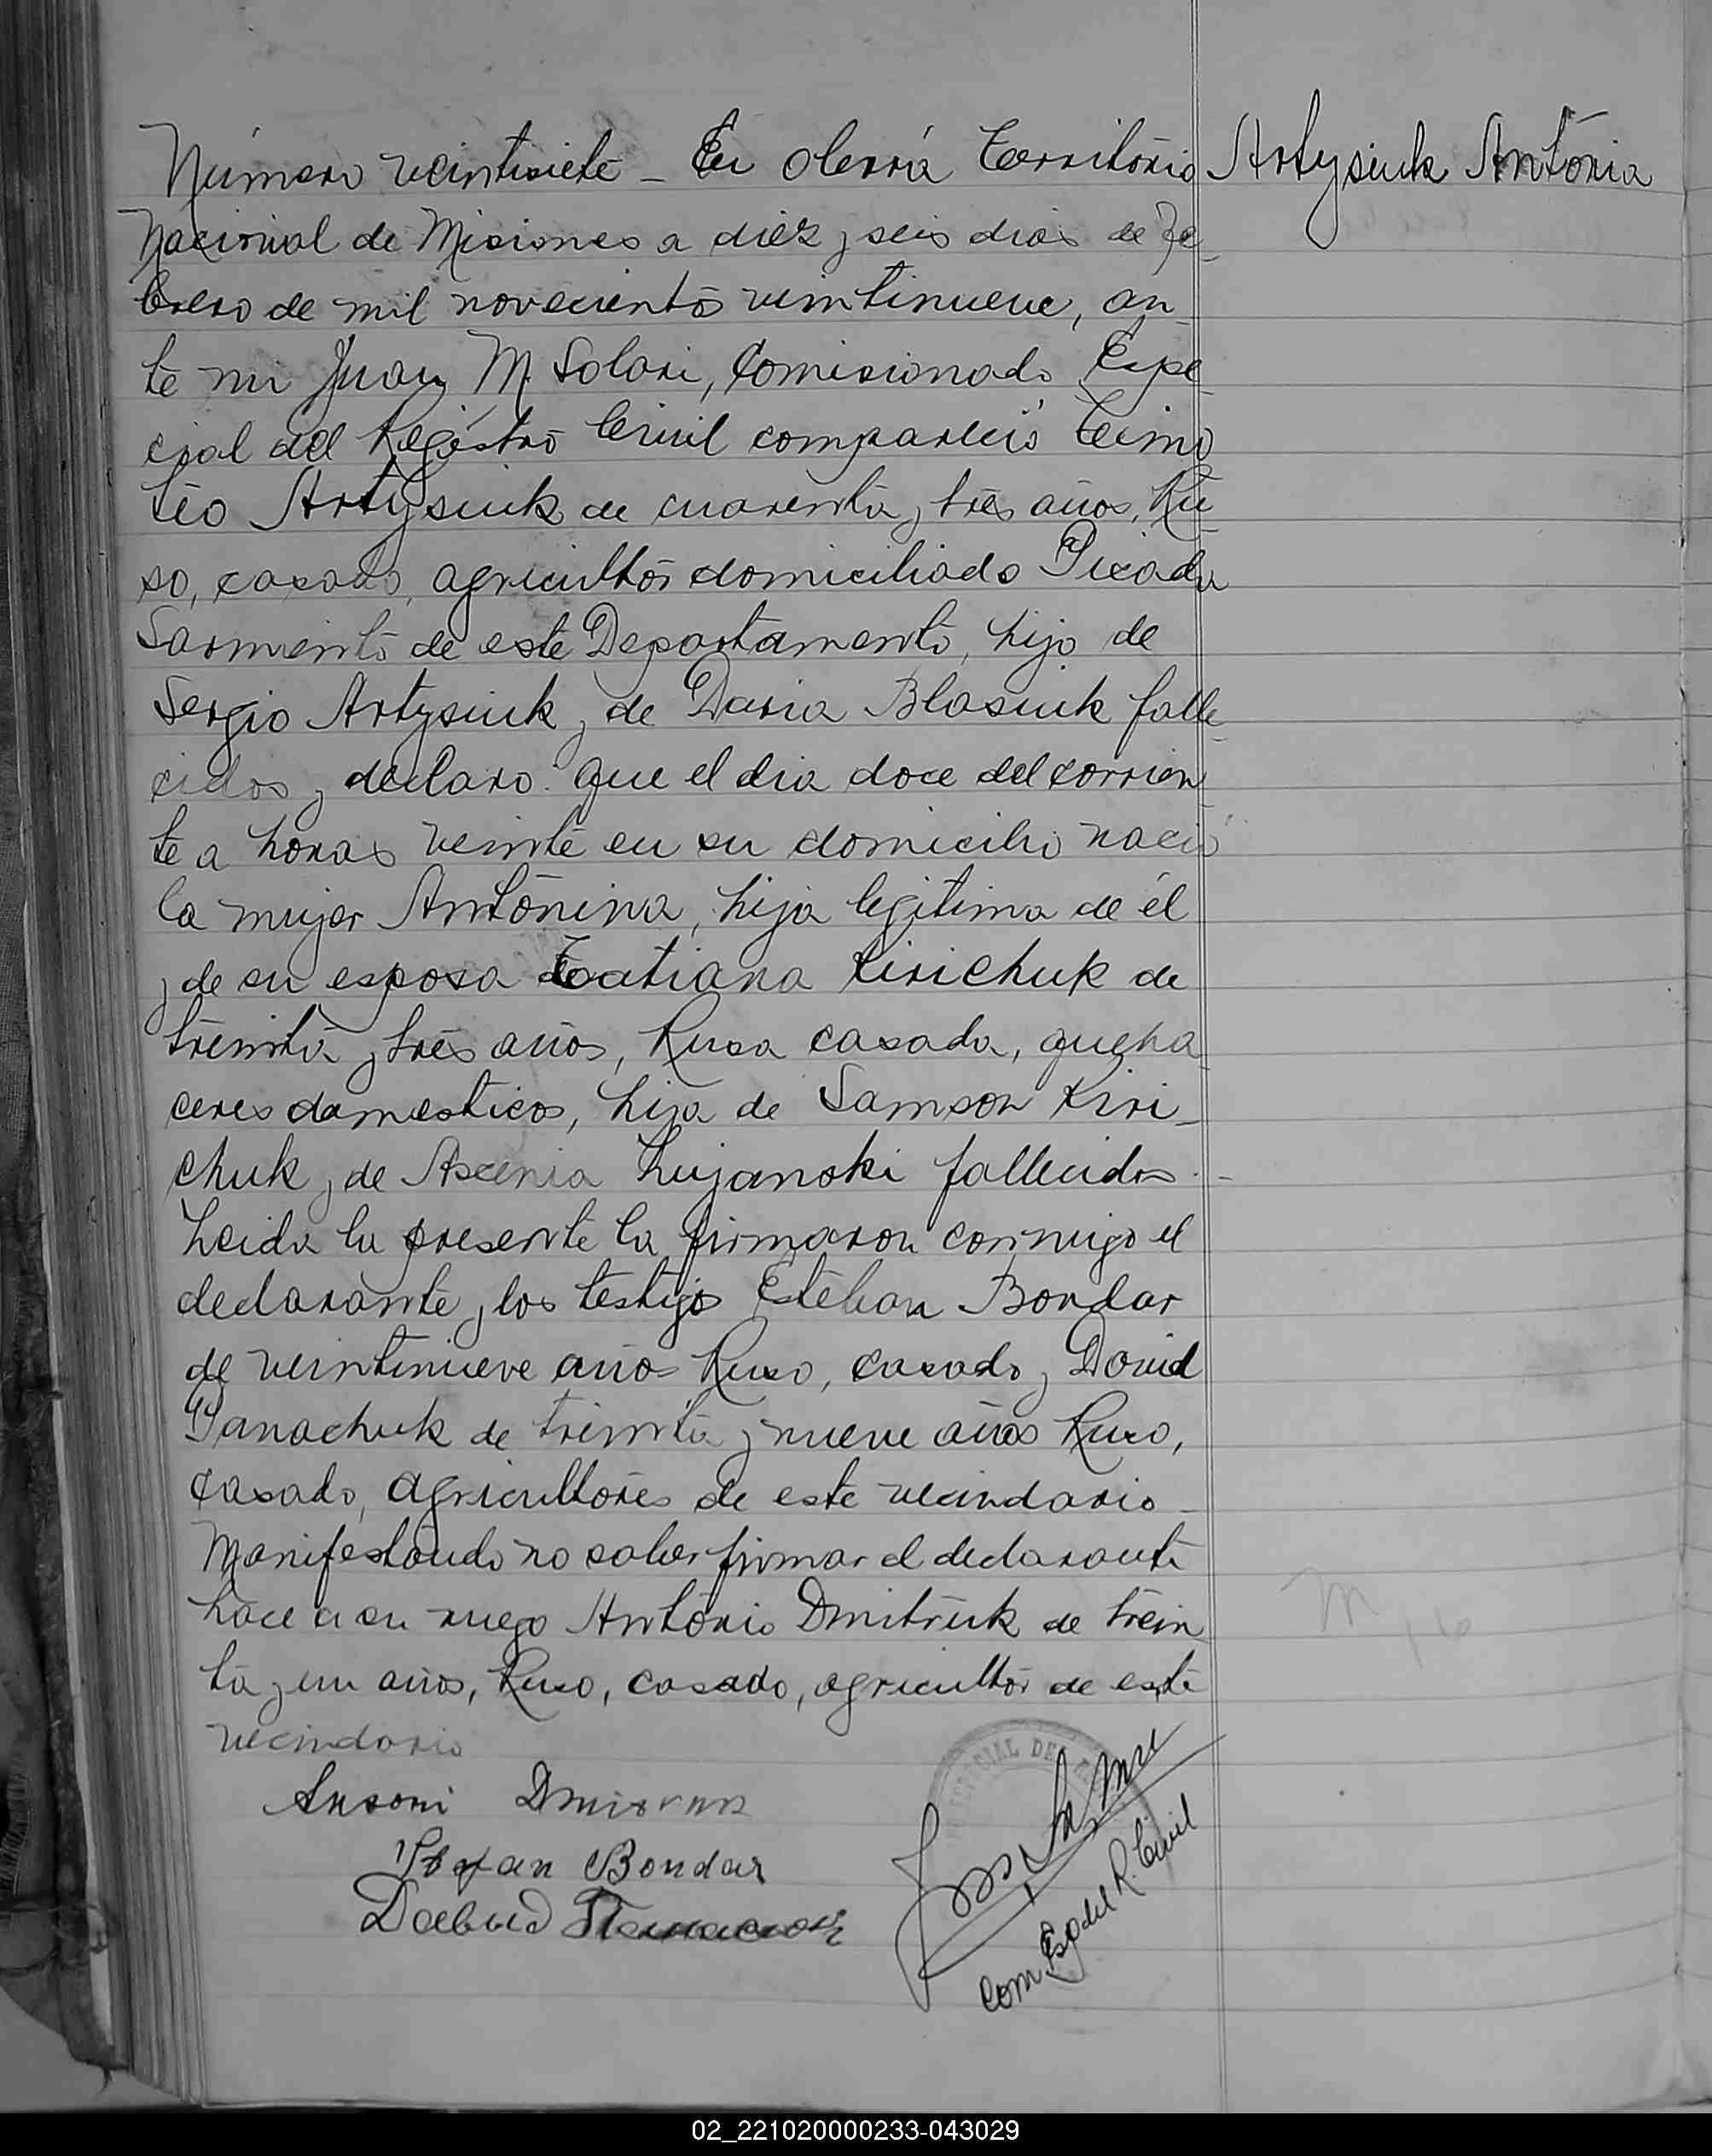 Número veintisiete - En Oberá Território
Artysiuk Antónia
Nacional de Misiones a diez y seis dias de Fe-
brero de mil novecientos veintinueve, an-
te mi Juan M. Solari, Comisionado Espe-
cial del Registro Civil compareció Teimo
teo Artysiuk de cuarenta y tres años, Ru-
so, casado, agricultor domiciliado Picada
Sarmiento de este Departamento, hijo de
Sergio Artysiuk y de Daria Blasiuk falle-
cidos y declaro: que el dia doce del corrien
te a horas veinte en su domicilio nació
la mujer Antónina, hija legitima de él
y de su esposa Tatiana Kirichuk de
treinta y tres años, Rusa casada, queha
ceres domesticos, hija de Samson Kiri-
chuk y de Axenia Lujanski fallecidos.-
Leida la presente la firmaron conmigo el
declarante y los testigos Esteban Bondar
de veintinueve años Ruso, casado y David
Panachuk de treinta y nueve años Ruso,
casado, agricultores de este vecindario-
Manifestando no saber firmar el declarante
hace a su ruego António Dmitruk de trein
ta y un años, Ruso, casado, agricultor de este
vecindario
Antoni
Stefan Bondar
Com Esp del R. Civil